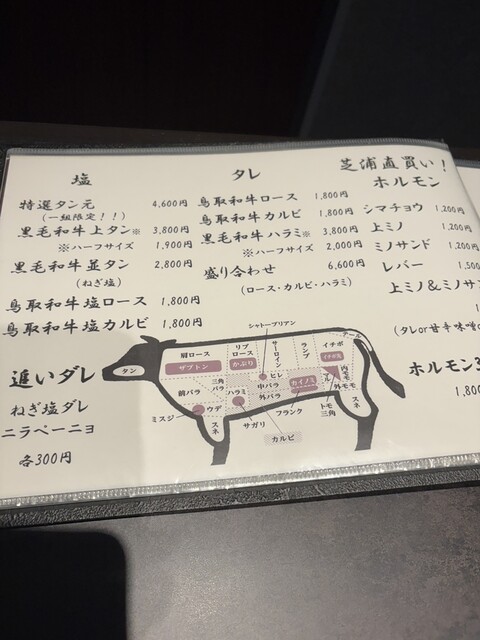 塩
特選タン元 4,600円
(一組限定!!)
黒毛和牛上タン※ 3,800円
※ハーフサイズ 1,900円
黒毛和牛並タン 2,800円
(ねぎ塩)
鳥取和牛塩ロース 1,800円
鳥取和牛塩カルビ 1,800円
タレ
鳥取和牛ロース 1,800円
鳥取和牛カルビ 1,800円
黒毛和牛ハラミ※ 3,800円
※ハーフサイズ 2,000円
盛り合わせ 6,600円
(ロース・カルビ・ハラミ)
芝浦直買い!
ホルモン
シマチョウ 1,200円
上ミノ 1,200円
ミノサンド 1,200円
レバー 1,500
上ミノ&ミノサン
(タレor甘辛味噌o
ホルモン3
1,800
追いダレ
ねぎ塩ダレ
ニラペーニョ
各300円
シャトーブリアン
タン
肩ロース
ザブトン
リブロース
かぶり
サーロイン
ヒレ
ランプ
イチボ
イチボ先
テール
三角バラ
前バラ
ハラミ
中バラ
外バラ
カイノミ
内モモ
外モモ
ミスジ
ウデ
サガリ
フランク
トモ三角
スネ
スネ
カルビ